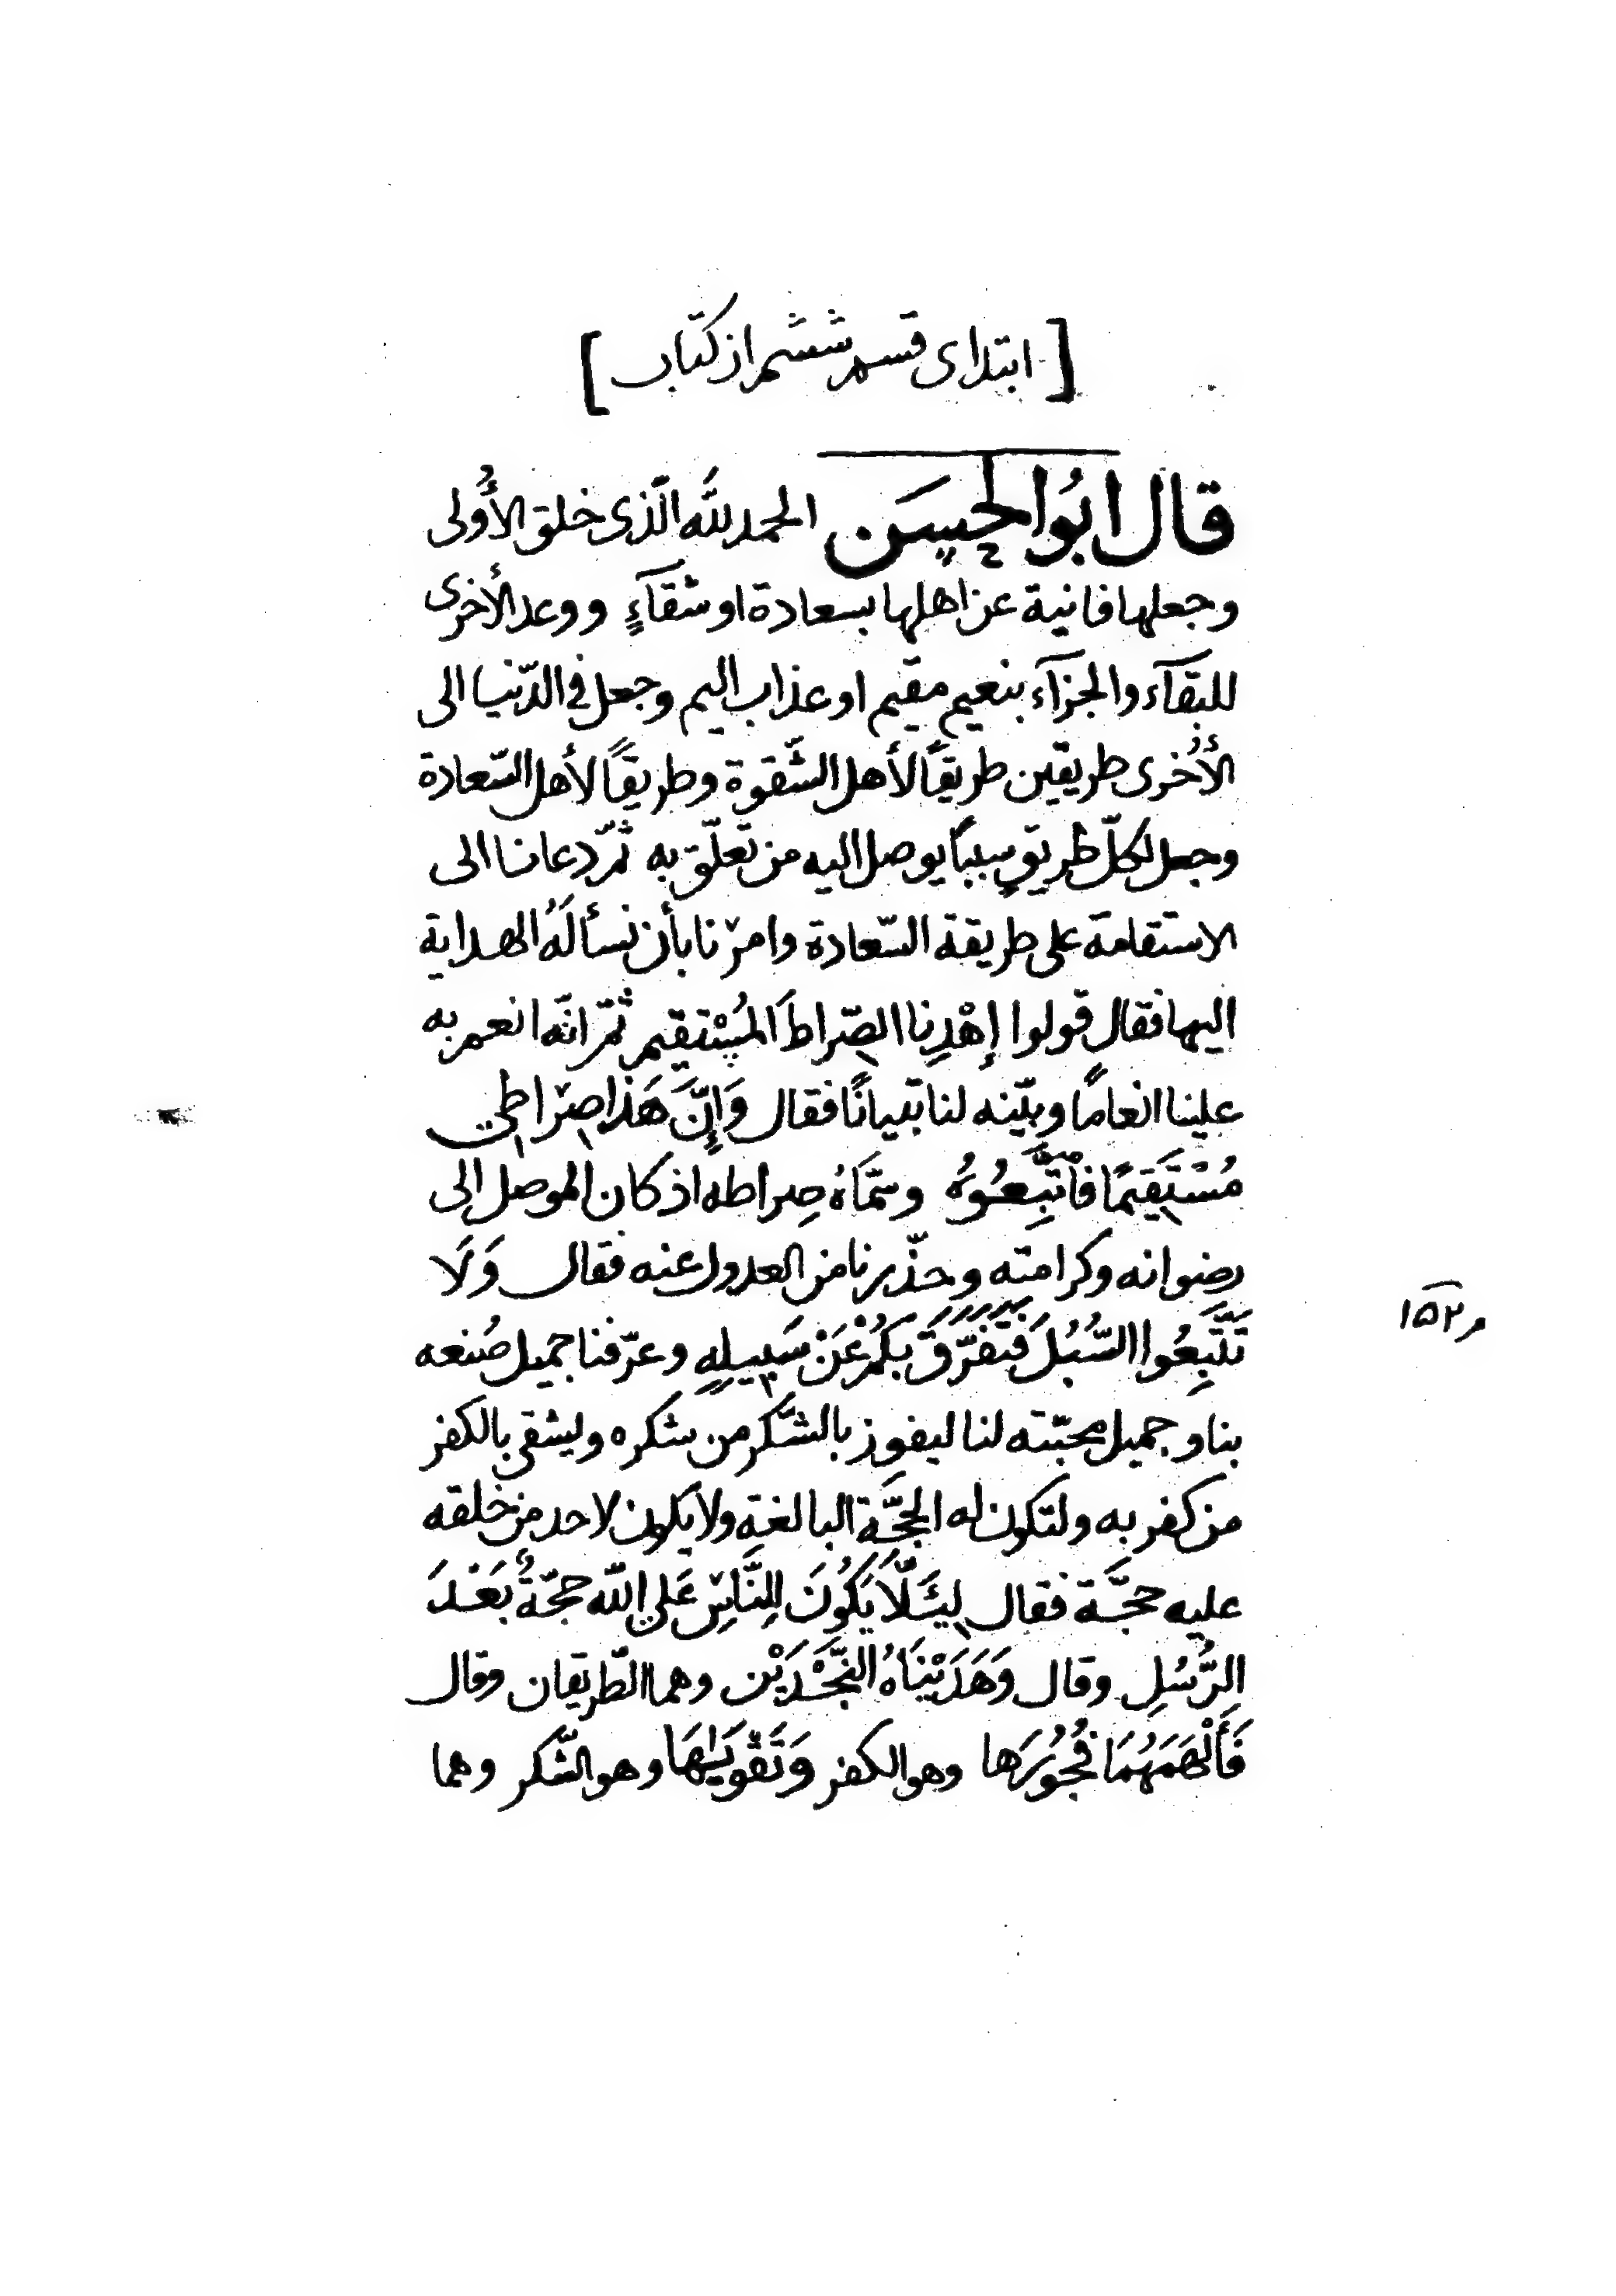 [ابتدای قسم ششم از کتاب]
قال ابُوالحسَن الحمد للّه الّذی خلق الأُولی
وجعلها فانیة عن اهلها بسعادة او شقآءٍ و وعد الأُخری
للبقآء والجزآء بنعیم مقیم او عذاب الیم وجعل فی الدّنیا الی
الأُخری طریقین طریقاً لأهل الشّقوة وطریقاً لأهل السّعادة
وجعل لکلّ طریقٍ سبباً یوصل الیه من تعلّق به ثمّ دعانا الی
الاستقامة علی طریقة السّعادة وامرنا بأن نسألَهُ الهدایة
الیها فقال قولوا إهْدِنا الصّراطَ المُسْتقیم ثمّ انّه انعم به
علینا انعاماً وبیّنه لنا تبیانًا فقال وَإِنَّ هَذا صِرَاطِی
مُسْتَقِیمًا فَاتَّبِعُوهُ وسمّاهُ صِراطه اذ کان الموصل الی
رضوانه وکرامته وحذّرنا من العدول عنه فقال وَلَا
تَتَّبِعُوا السُّبُلَ فَتَفَرَّقَ بِکُمْ عَنْ سَبِیلِهِ وعرّفنا جمیل صُنعه
م۱۵۲
بنا وجمیل محبّته لنا لیفوز بالشّکر من شکره ویشقی بالکفر
من کفر به ولتکون له الحجَّة البالغة ولایکون لاحد من خلقه
علیه حجَّة فقال لِئَلَّا یَکُونَ لِلنَّاسِ عَلَی اللّه حجّةٌ بَعْدَ
الرُّسُلِ وقال وَهَدَیْنَاهُ النَّجْدَیْن وهما الطّریقان وقال
فَأَلْهَمَهُمَا فُجُورَها وهو الکفر وَتَقْوَیٰهَا وهو الشّکر وهما